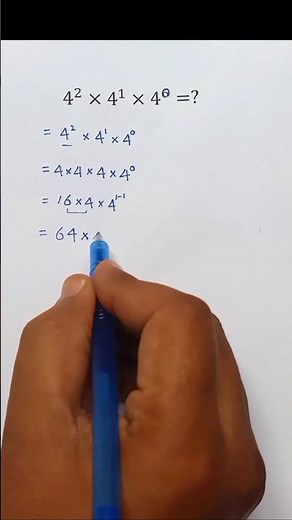 4² × 4¹ × 4⁰ =?
= 4² × 4¹ × 4⁰
= 4×4×4×4⁰
= 16×4×4¹⁻¹
= 64×